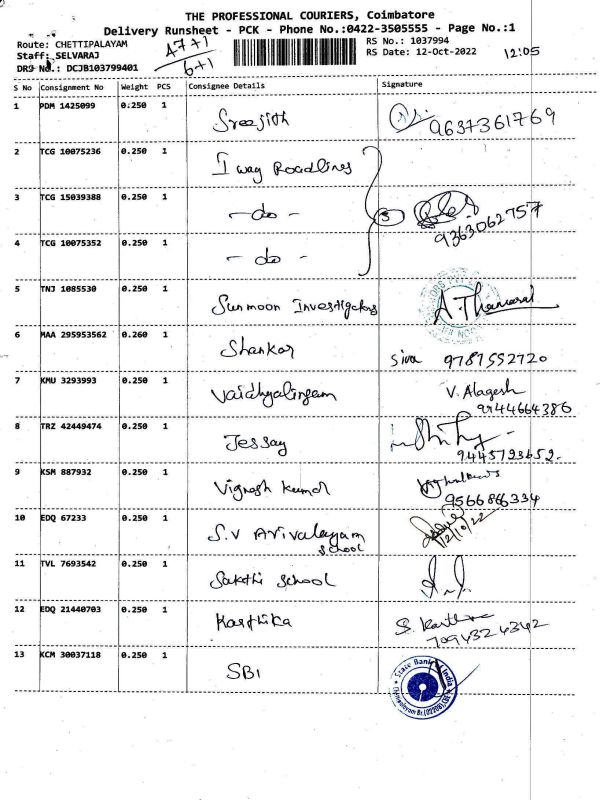 THE PROFESSIONAL COURIERS, Coimbatore
Delivery Runsheet - PCK - Phone No.:0422-3505555 - Page No.:1
Route: CHETTIPALAYAM 47+1 RS No.: 1037994
Staff: SELVARAJ 6+1 RS Date: 12-Oct-2022 12:05
DRS No.: DCJB103799401
S No Consignment No Weight PCS Consignee Details Signature
1 PDM 1425099 0.250 1 Sreejith 9637361769
2 TCG 10075236 0.250 1 I way Roadlines
3 TCG 15039388 0.250 1 - do - 3 9363062757
4 TCG 10075352 0.250 1 - do -
5 TNJ 1085530 0.250 1 Sunmoon Investigators A.Thamarai
6 MAA 295953562 0.260 1 Shankar siva 9787552720
7 KMU 3293993 0.250 1 Vaidhyalingam V. Alagesh
9944664386
8 TRZ 42449474 0.250 1 Jessay
9445723652
9 KSM 887932 0.250 1 Vignesh Kumar
9566866334
10 EDQ 67233 0.250 1 S.V Arivalayam
school 12/10/22
11 TVL 7693542 0.250 1 Sakthi School
12 EDQ 21440703 0.250 1 Karthika S. Karthika
7094324342
13 KCM 30037118 0.250 1 SBI State Bank of India